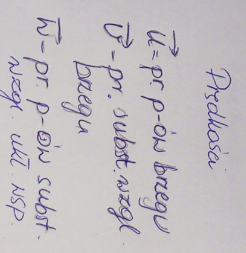 Prędkości
u⃗ = pr. p-ów brzegu
v⃗ = pr. subst. wzgl.
brzegu
w⃗ = pr. p-ów subst.
wzgl. ukł. wsp.